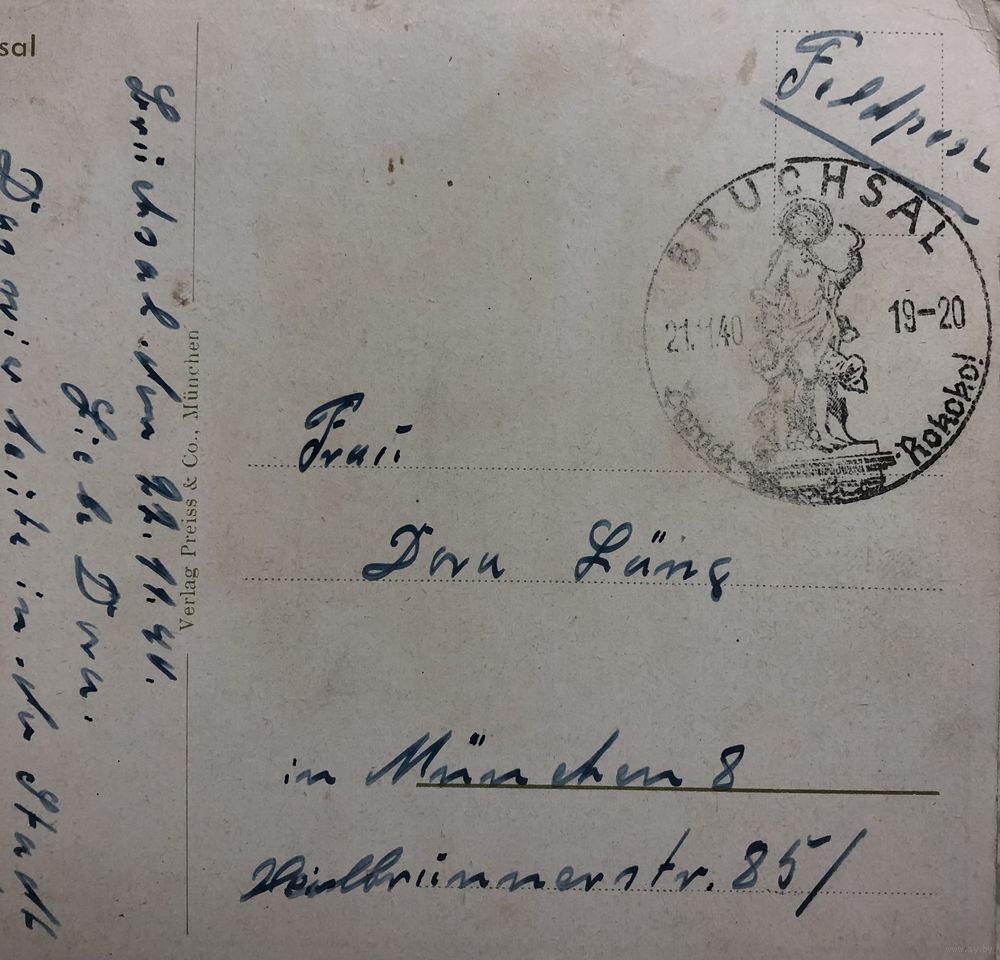 sal
Feldpost
BRUCHSAL
21.11.40
19-20
Rokoko!
Verlag Preiss & Co., München
Frau
Dora Läng
in München 8
Heilbrunnerstr. 85/
Bruchsal den 22.11.40.
Liebe Dora.
heute in der Stadt